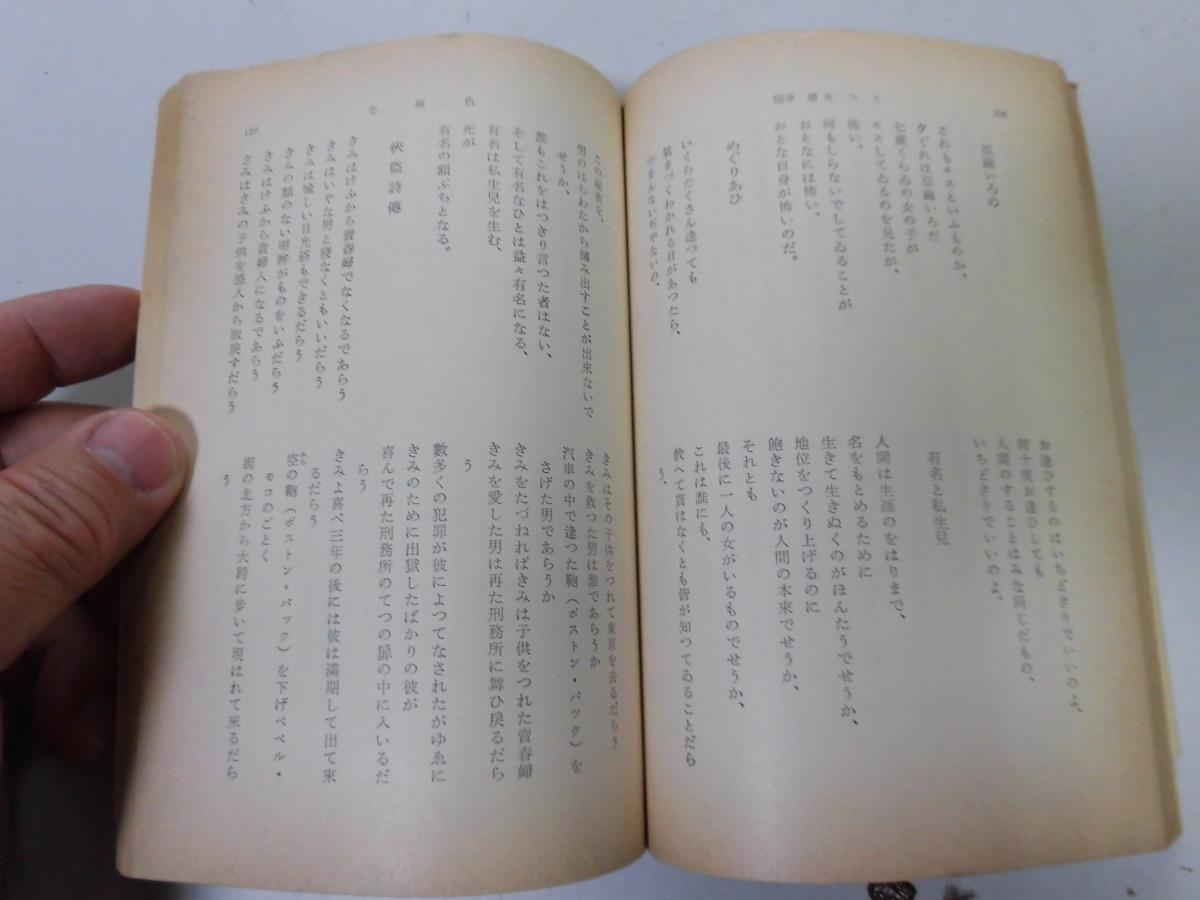 これもキスといふものか、
夕ぐれは亞鉛いろだ
七歳くらゐの女の子が
キスしてゐるのを見たが、
怖い、
何もしらないでしてゐることが
おとなには怖い、
おとな自身が怖いのだ。
めぐりあひ
いくらたくさん逢つても
氣まづくわかれる日があつたら、
つまんないぢやないの、
お逢ひするのはいちどきりでいいのよ、
何十度お逢ひしても
人間のすることはみな同じだもの、
いちどきりでいいのよ。
有名と私生兒
人間は生涯のをはりまで、
名をもとめるために
生きて生きぬくのがほんたうでせうか、
地位をつくり上げるのに
飽きないのが人間の本來でせうか、
それとも
最後に一人の女がいるものでせうか、
これは誰にも、
敎へて貰はなくとも皆が知つてゐることだら
う、
137
この祕密を、
男のはらわたから摑み出すことが出來ないで
せうか、
誰もこれをはつきり言つた者はない、
そして有名なひとは益々有名になる、
有名は私生兒を生む、
死が
有名の額ぶちとなる。
俠盜詩傳
きみはけふから賣春婦でなくなるであらう
きみはいやな男と寢なくともいいだらう
きみは愉しい日光浴もできるだらう
きみの類のない明眸がものをいふだらう
きみはけふから貴婦人になるであらう
きみはきみの子供を惡人から取戾すだらう
きみはその子供をつれて東京を去るだらう
きみを救つた男は誰であらうか
汽車の中で逢つた鞄（ボストン・バック）を
さげた男であらうか
きみをたづねればきみは子供をつれた賣春婦
きみを愛した男は再た刑務所に舞ひ戾るだら
う
數多くの犯罪が彼によつてなされたがゆゑに
きみのために出獄したばかりの彼が
喜んで再た刑務所のてつの扉の中に入いるだ
らう
きみよ喜べ三年の後には彼は滿期して出て來
るだらう
空の鞄（ボストン・バック）を下げペペル・
モコのごとく
街の北方から大跨に步いて現はれて來るだら
う